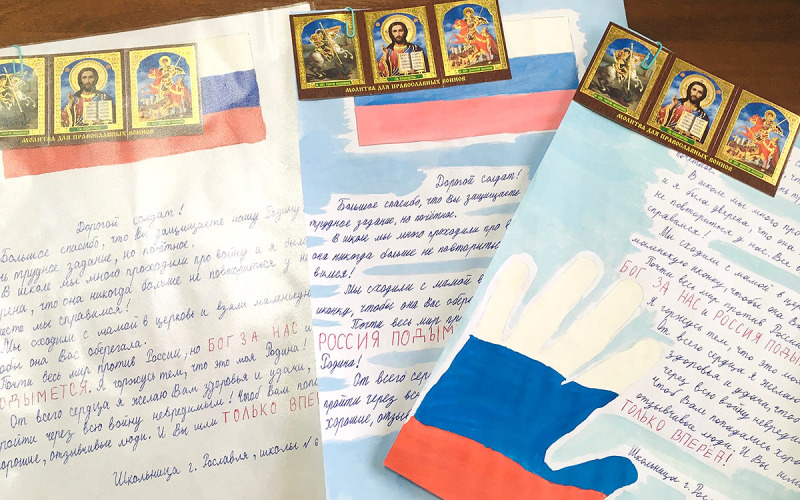 МОЛИТВА ДЛЯ ПРАВОСЛАВНЫХ ВОИНОВ
Дорогой солдат!
Большое спасибо, что Вы защищаете нашу Родину
не трудное задание, но почётное.
В школе мы много проходили про войну и я был
рена, что она никогда больше не повториться у не
месте мы справимся!
Мы сходили с мамой в церковь и взяли маленькую
тобы она Вас оберегала.
Почти весь мир против России, но БОГ ЗА НАС и
ОДЫМЕТСЯ. Я горжусь тем, что это моя Родина!
От всего сердца я желаю Вам здоровья и удачи,
ройти через всю войну невредимым! Чтоб Вам попа
хорошие, отзывчивые люди. И Вы шли ТОЛЬКО ВПЕР
Школьница г. Рославля, школы № 6
МОЛИТВА ДЛЯ ПРАВОСЛАВНЫХ ВОИНОВ
Дорогой солдат!
Большое спасибо, что Вы защищаете
трудное задание, но почётное.
В школе мы много проходили про в
она никогда больше не повториться
вимся!
Мы сходили с мамой в
иконку, чтобы она Вас обере
Почти весь мир пр
РОССИЯ ПОДЫМ
Родина!
От всего сердца я жела
пройти через всю войну н
хорошие, отзыв
МОЛИТВА ДЛЯ ПРАВОСЛАВНЫХ ВОИНОВ
почётное.
В школе мы много про
и я была уверена, что она
не повториться у нас. Все
справимся!
Мы сходили с мамой в цер
маленькую иконку, чтобы она Вас
Почти весь мир против Росси
БОГ ЗА НАС и РОССИЯ ПОДЫ
Я горжусь тем, что это мо
От всего сердца я желаю
здоровья и удачи, что
через всю войну невреди
Чтоб Вам попадались хоро
отзывчивые люди. И Вы шли
ТОЛЬКО ВПЕРЕД!
Школьница г. Рос